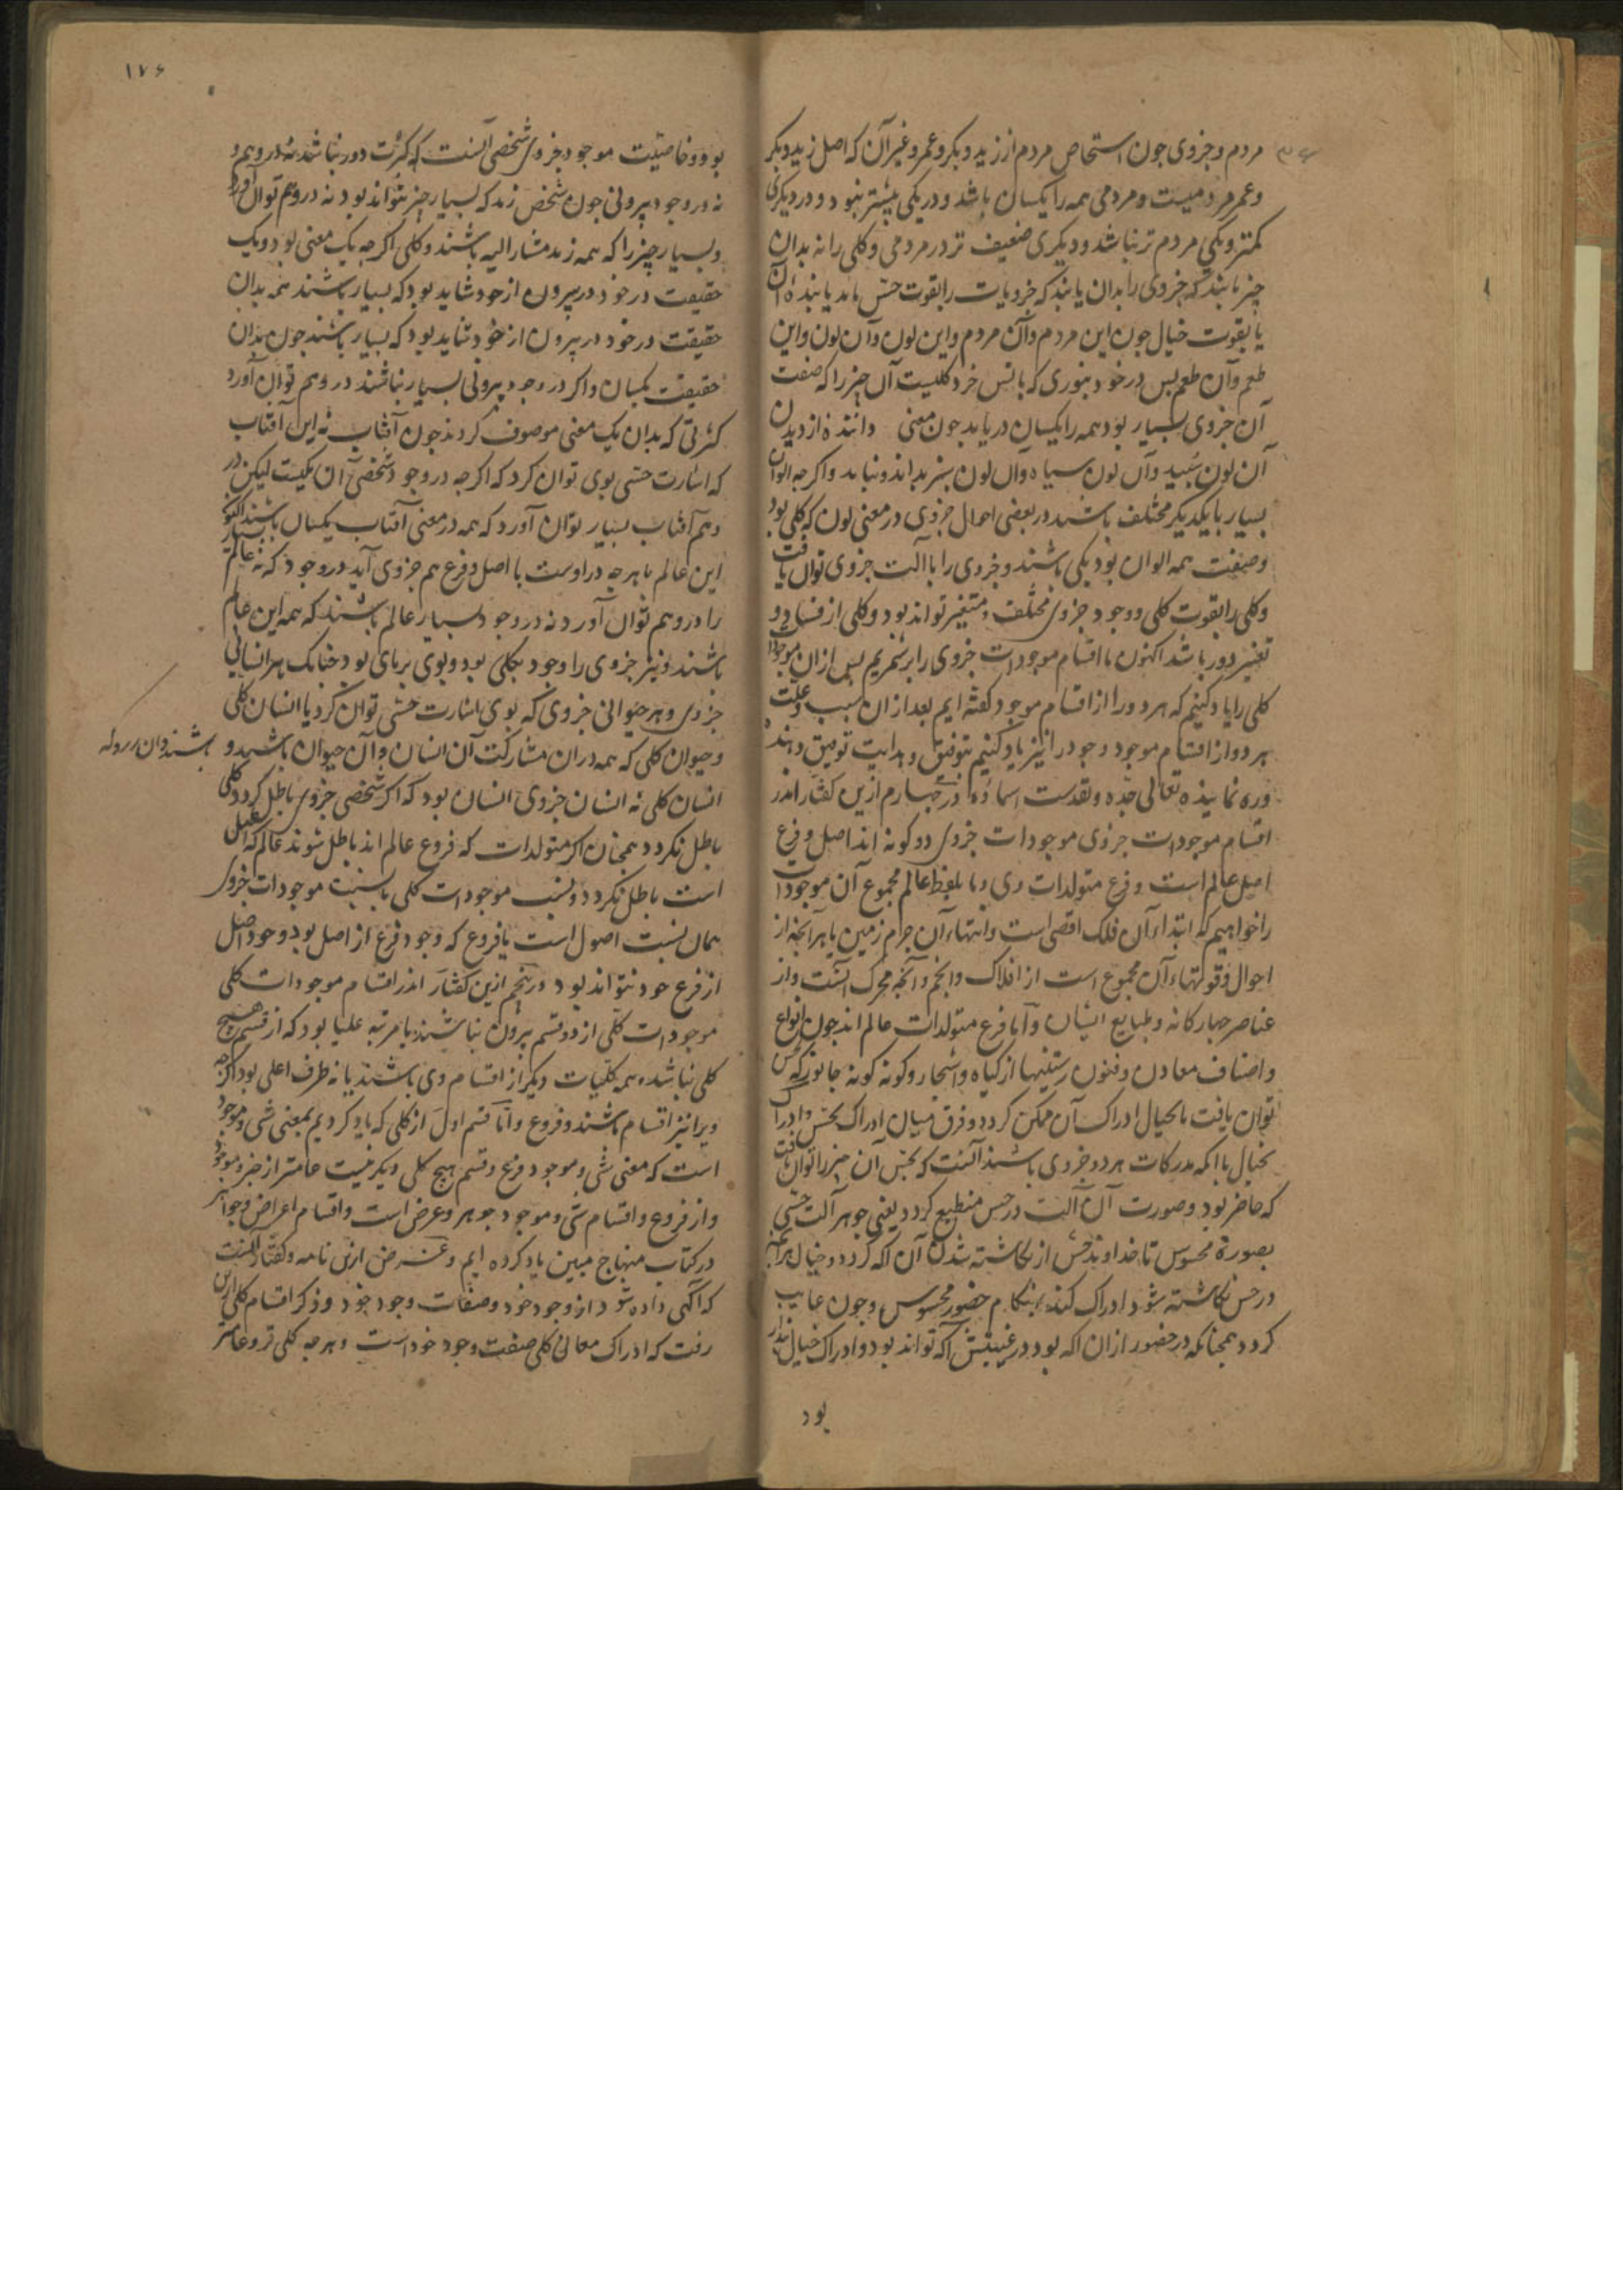 مردم و جزوی چون اشخاص مردم از زید و بکر و عمرو و غیر آن که اصل زید و بکر
و عمر مردمیست و مردمی همه را یکسان باشد و در یکی بیشتر نبود و در دیگری
کمتر و یکی مردم تر نباشد و دیگری ضعیف تر در مردمی و کلی را نه بدان
چیز یابند که جزوی را بدان یابند که جزویات را بقوت حس یابد یابنده آن
یا بقوت خیال چون این مردم و آن مردم و این لون و آن لون و این
طعم و آن طعم پس در خود بنوری که با نفس خرد کلیست آن چیز را که صفت
آن جزوی بسیار بود همه را یکسان دریابد چون معنی داننده از دیدن
آن لون سپید و آن لون سیاه و آن لون سبز بداند و نیابد و اگرچه الوان
بسیار با یکدیگر مختلف باشند در بعضی احوال جزوی در معنی لون که کلی بود
و صفت همه الوان بود یکی باشند و جزوی را با آلت جزوی توان یافت
و کلی را بقوت کلی و وجود جزوی مختلف و متغیر تواند بود و کلی از فساد و
تغییر دور باشد اکنون ما اقسام موجودات جزوی را برشمریم پس از آن موجودات
کلی را یاد کنیم که هر دو را از اقسام موجود گفته ایم بعد از آن سبب و علت
هر دو از اقسام موجود و جود را نیز یاد کنیم بتوفیق و هدایت توفیق دهنده
و ره نماینده تعالی جده و تقدست اسماؤه در چهارم ازین گفتار اندر
اقسام موجودات جزوی موجودات جزوی دو گونه اند اصل و فرع
اصل عالم است و فرع متولدات وی و ما بلفظ عالم مجموع آن موجودات
را خواهیم که ابتداء آن فلک اقصی است و انتهاء آن جرم زمین با هر آنچه از
احوال و قوتهاء آن مجموع است از افلاک و انجم و آنچه محرک آنست و از
عناصر چهارگانه و طبایع ایشان و اما فرع متولدات عالم اند چون انواع
و اصناف معادن و فنون رستنیها از گیاه و اشجار و گونه گونه جانور که بحس
توان یافت یا بخیال ادراک آن ممکن گردد و فرق میان ادراک بحس و ادراک
بخیال با آنکه مدرکات هر دو جزوی باشند آنست که بحس آن چیز را توان یافت
که حاضر بود و صورت آن آلت در حس منطبع گردد یعنی جوهر آلت حسی
بصورة محسوس تا خداوند حس از نگاشته شدن آن آگه گردد و خیال هر آنچه
در حس نگاشته شود ادراک کند بهنگام حضور محسوس و چون غایب
گردد همچنانکه در حضور از آن آگه بود در غیبتش آگه تواند بود و ادراک خیال
بود
۱۷۶
بود و خاصیت موجود جزوی شخصی آنست که کثرت دور نباشد نه در وهم و
نه در وجود بیرونی چون شخص زید که بسیار چیز نتواند بود نه در وهم توان آورد
و بسیار چیز را که همه زید مشار الیه باشند و کلی اگرچه یک معنی بود و یک
حقیقت در خود در بیرون از خود شاید بود که بسیار باشند همه بدان
حقیقت در خود در بیرون از خود شاید بود که بسیار باشند چون بدان
حقیقت یکسان و اگر در وجود بیرونی بسیار نباشند در وهم توان آورد
کثرتی که بدان یک معنی موصوف گردند چون آفتاب نه این آفتاب
که اشارت حسی بوی توان کرد که اگرچه در وجود شخصی آن یکیست لیکن در
وهم آفتاب بسیار توان آورد که همه در معنی آفتاب یکسان باشند
این عالم با هرچه در اوست با اصل و فرع هم جزوی آید در وجود که نه عالم
را در وهم توان آورد نه در وجود بسیار عالم باشند که همه این عالم
باشند و نیز جزوی را وجود بکلی بود و بوی برپای بود چنانک هر انسانی
جزوی و هر حیوانی جزوی که بوی اشارت حسی توان کرد با انسان کلی
و حیوان کلی که همه در آن مشارکت آن انسان و آن حیوان باشند و
انسان کلی نه انسان جزوی انسان بود که اگر شخصی جزوی باطل گردد کلی
باطل نگردد همچنان اگر متولدات که فروع عالم اند باطل شوند عالم که اصل
است باطل نگردد و نسبت موجودات کلی با نسبت موجودات جزوی
همان نسبت اصول است با فروع که وجود فرع از اصل بود و وجود اصل
از فرع خود نتواند بود در پنجم ازین گفتار اندر اقسام موجودات کلی
موجودات کلی از دو قسم بیرون نباشند یا مرتبه علیا بود که از قسم هیچ
کلی نباشد همه کلیات دیگر از اقسام وی باشند یا نه طرف اعلی بود اگرچه
ویرا نیز اقسام باشند و فروع و اما قسم اول از کلی که یاد کردیم بمعنی شی و موجود
است که معنی شی و موجود فرع و قسم هیچ کلی دیگر نیست عامتر از چیز و موجود
و از فروع و اقسام شی و موجود جوهر و عرض است و اقسام اعراض و جواهر
در کتاب منهاج مبین یاد کرده ایم و غرض ازین نامه و گفتار آنست
که آگهی داده شود از وجود خود و صفات وجود خود و ذکر اقسام کلی از این
رفت که ادراک معانی کلی صفت وجود خود است و هرچه کلی تر و عامتر